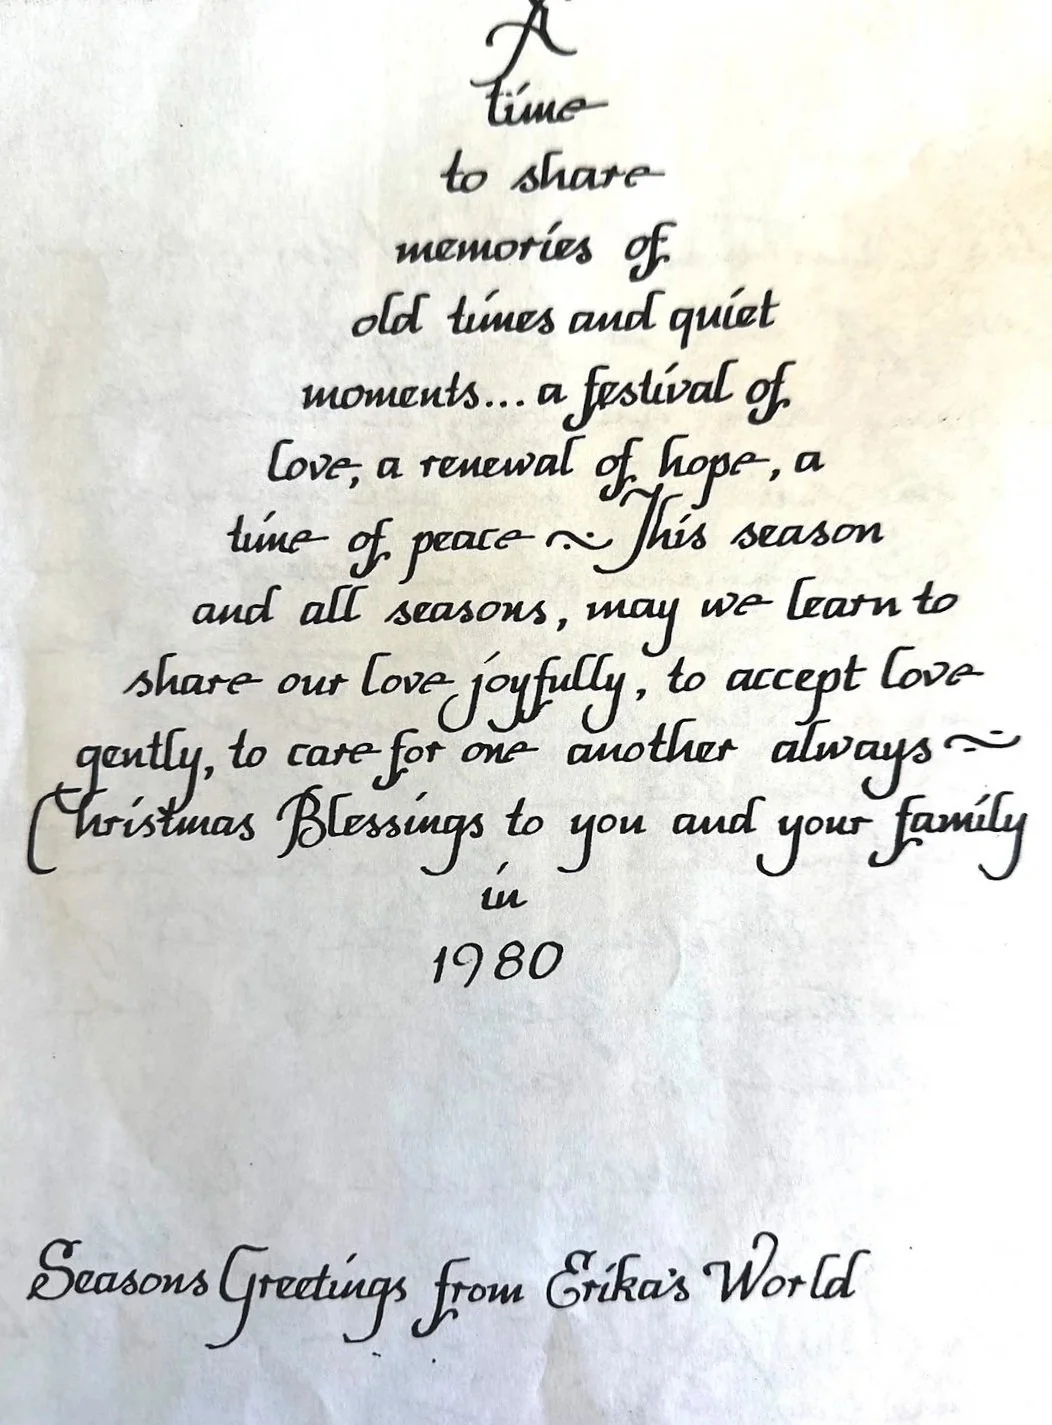 A
time
to share
memories of
old times and quiet
moments... a festival of
love, a renewal of hope, a
time of peace ~ This season
and all seasons, may we learn to
share our love joyfully, to accept love
gently, to care for one another always ~
Christmas Blessings to you and your family
in
1980
Seasons Greetings from Erika's World